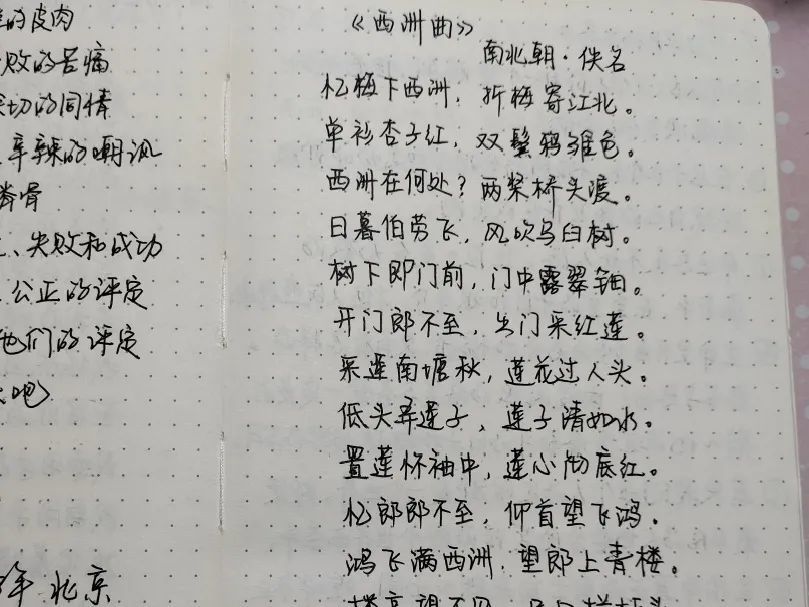 的皮肉
败的苦痛
切的同情
辛辣的嘲讽
脊骨
、失败和成功
公正的评定
他们的评定
吧
年 北京
《西洲曲》
南北朝·佚名
忆梅下西洲，折梅寄江北。
单衫杏子红，双鬓鸦雏色。
西洲在何处？两桨桥头渡。
日暮伯劳飞，风吹乌臼树。
树下即门前，门中露翠钿。
开门郎不至，出门采红莲。
采莲南塘秋，莲花过人头。
低头弄莲子，莲子清如水。
置莲怀袖中，莲心彻底红。
忆郎郎不至，仰首望飞鸿。
鸿飞满西洲，望郎上青楼。